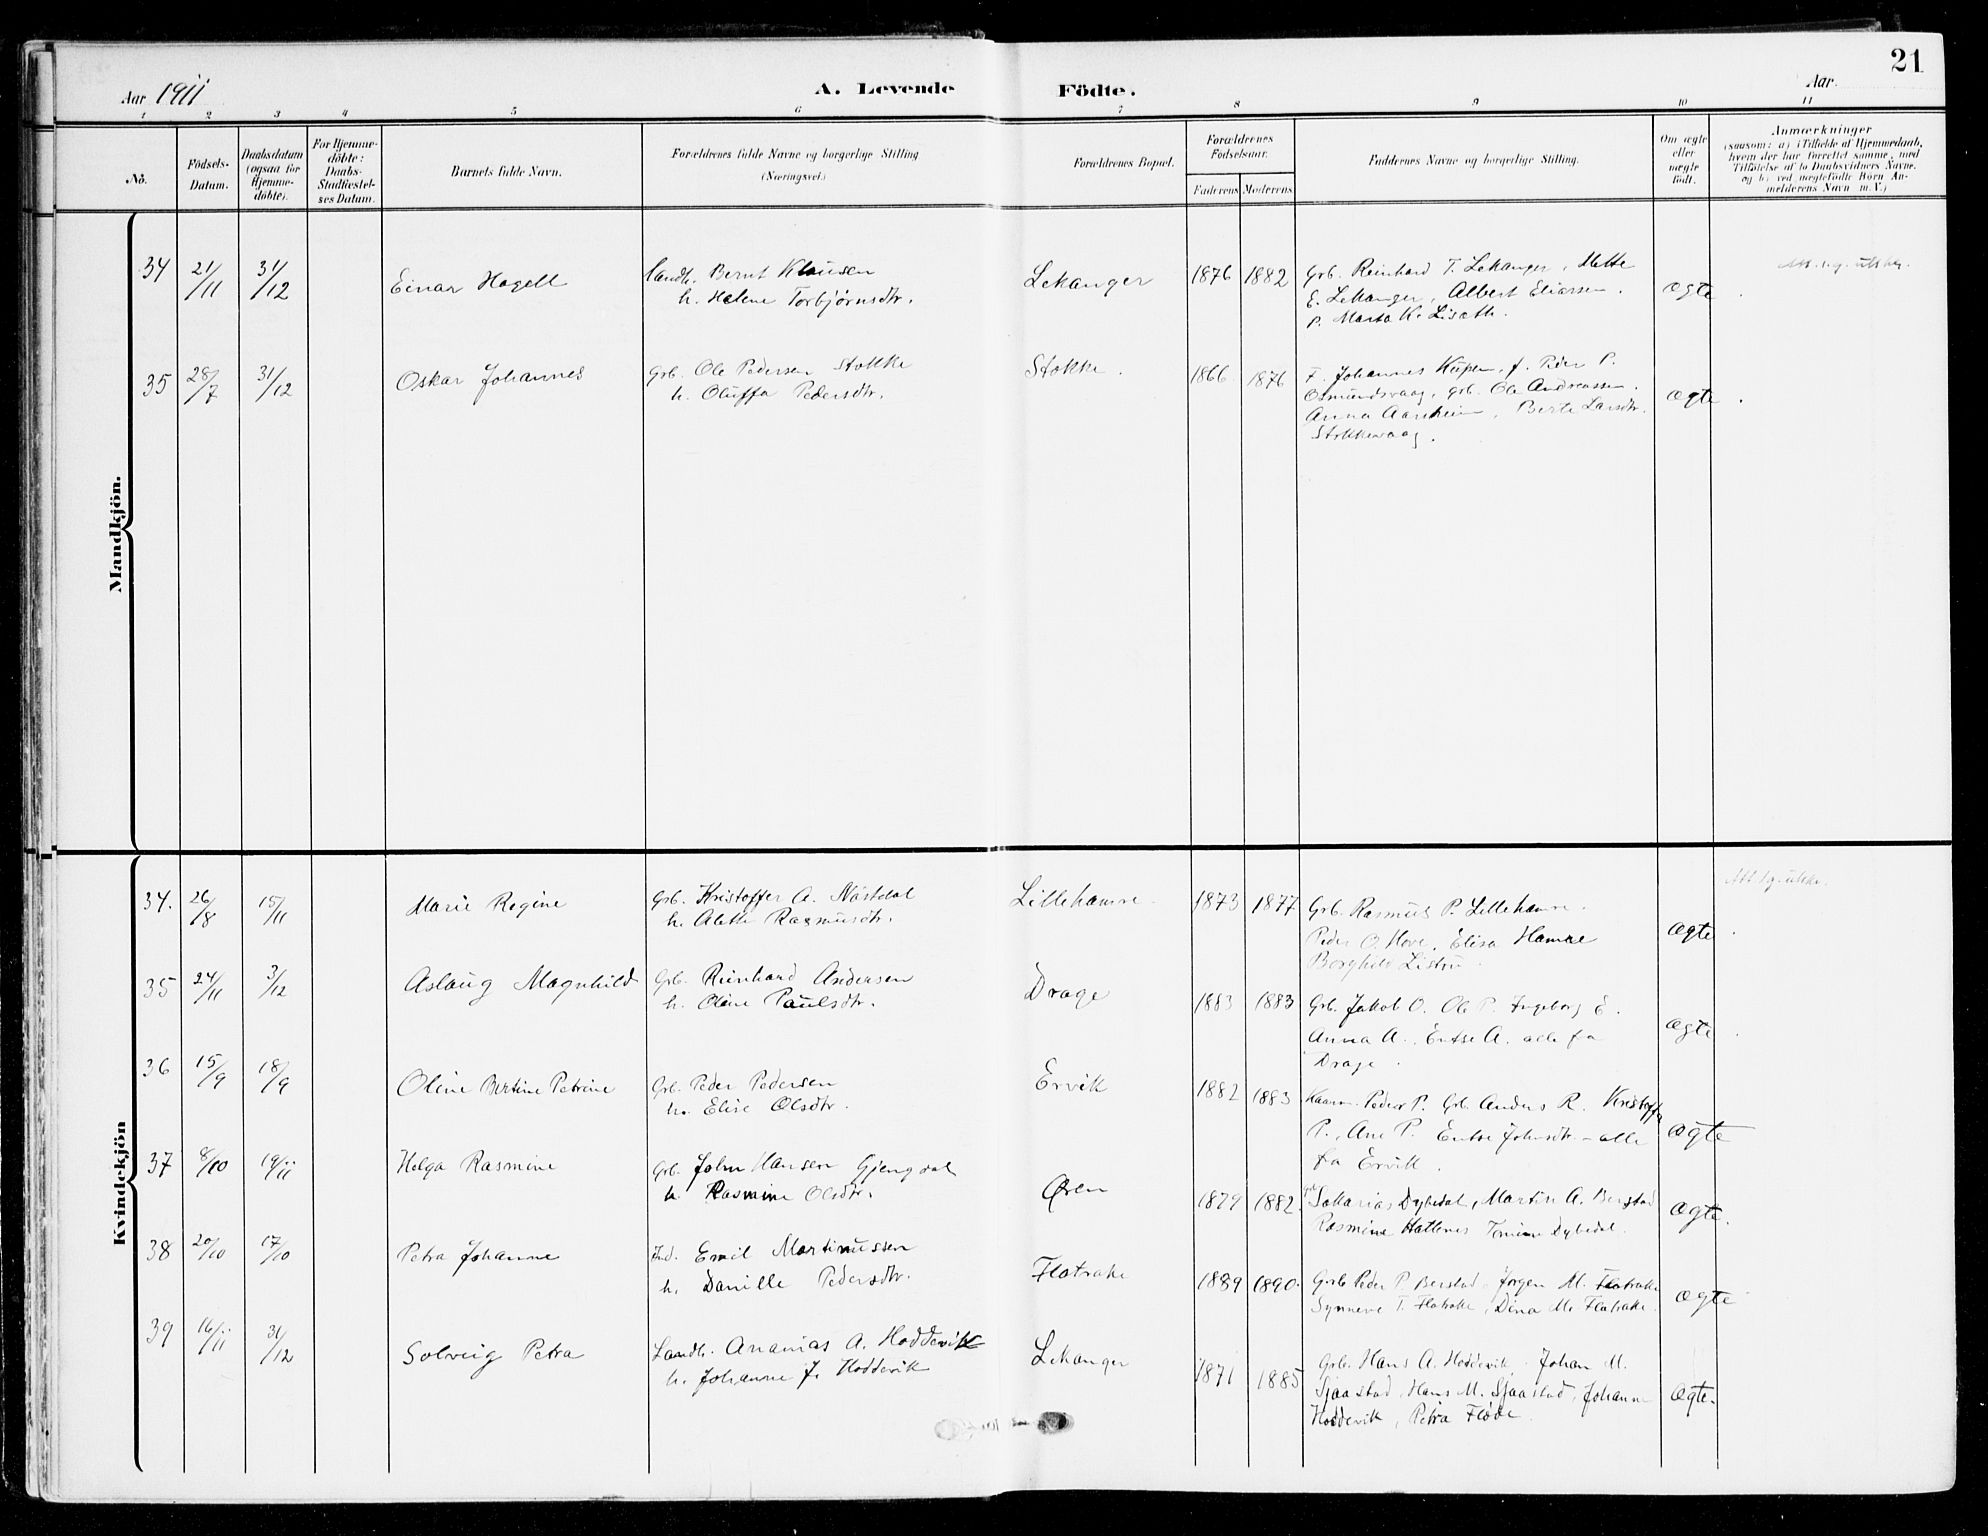 21
Aar 1911
A. Levende Födte.
Aar.
1 2 3 4 5 6 7 8 9 10 11
No.
Födsels-
Datum.
Daabsdatum
(ogsaa for
Hjemme-
döbte).
For Hjemme-
döbte:
Daabs-
Stadfæstel-
ses Datum.
Barnets fulde Navn.
Forældrenes fulde Navne og borgerlige Stilling
(Næringsvei.)
Forældrenes Bopæl.
Forældrenes
Födselsaar.
Faderens Moderens
Faddernes Navne og borgerlige Stilling.
Om ægte
eller
uægte
födt.
Anmærkninger
(saasom: a) i Tilfælde af Hjemmedaab,
hvem der har forrettet samme, med
Tilföielse af to Daabsvidners Navne.
og b) ved uægtefödte Börn An-
melderens Navn m.V.)
Mandkjön.
34 21/11 31/12 Einar Hagell
Landh. Bernt Klausen
h. Helene Torbjørnsdtr.
Lekanger 1876 1882
Grb. Reinhard T. Lekanger, Mette
E. Lekanger, Albert Eliassen.
P. Marta K.
ægte
35 28/7 31/12 Oskar Johannes
Grb. Ole Pedersen Stokke
h. Oluffa Pedersdtr.
Stokke. 1866 1876
F. Johannes f. Peder P.
Osmundsvaag, Grb. Ole Andreassen.
Anna Aarsheim, Berte Larsdtr.
Stokkevaag.
ægte.
Kvindekjön
34. 26/8 15/11 Marie Regine
Grb. Kristoffer A. Nåstdal
h. Alette Rasmusdtr.
Lillehamre. 1873 1877
Grb. Rasmus P. Lillehamre.
Peder O. Hove, Elisa Hamre
Borghild
ægte
35 24/11 3/12 Aslaug Magnhild
Grb. Reinhard Andersen
h. Oline Paulsdtr.
Drage 1883 1883
Grb. Jakob O. Ole P. Ingeborg E.
Anna A., Entse A. alle fra
Drage.
ægte
36 15/9 18/9 Oline Bertine Petrine
Grb. Peder Pedersen
h. Elise Olsdtr.
Ervik 1882 1883
Peder P. Grb. Anders R. Kristoffa
P., Ane P. Entse Johnsdtr. – alle
fra Ervik.
ægte
37 8/10 19/11 Helga Rasmine
Grb. John Hansen Gjengdal
h. Rasmine Olsdtr.
Øren 1879 1882.
Grb. Sakarias Dybedal, Martin A. Berstad
Rasmine Hatlenes Dybedal.
ægte.
38 20/10 17/10 Petra Johanne
Ind. Emil Martinussen
h. Danille Pedersdtr.
Flatrake 1889 1890.
Grb. Peder P. Berstad. Jørgen M. Flatrake
Synneve T. Flatrake, Dina M. Flatrake.
ægte
39 16/11 31/12 Solveig Petra
Landh. Ananias A. Hoddevik
h. Johanne J. Hoddevik
Lekanger 1871 1885
Grb. Hans A. Hoddevik. Johan M.
Sjaastad, Hans M. Sjaastad, Johanne
Hoddevik, Petra Fløde.
ægte.